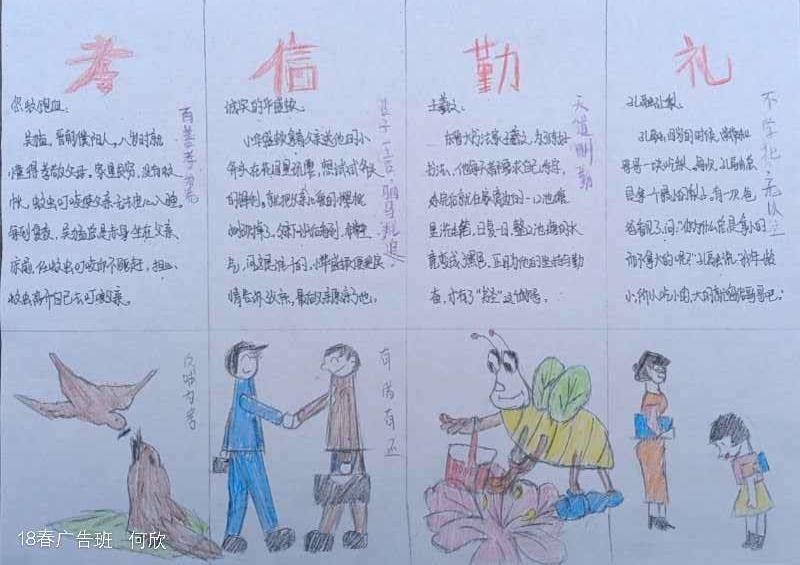 孝
百善孝为先
吴猛,晋朝濮阳人。八岁时就
懂得孝敬父母,家里贫穷,没有蚊
帐,蚊虫叮咬使父亲无法安心入睡。
每到夏夜,吴猛总是赤身坐在父亲
床前,任蚊虫叮咬而不驱赶,担心
蚊虫离开自己去叮咬父亲。
信
君子一言,驷马难追。
诚实的华盛顿:
小华盛顿拿着父亲送他的小
斧头在花园里玩耍,想试试斧头
的锋利,就把父亲心爱的樱桃
树砍掉。父亲回来看到,非常生
气,问这是谁干的,小华盛顿便把实
情告诉父亲,最后父亲原谅了他。
勤
天道酬勤
王羲之:
东晋大书法家王羲之,为了练好
书法,他每天都要求自己练字,
练完后就在家旁边的一口池塘
里洗毛笔,日复一日,整口池塘的水
竟变成了墨色,正因为他的坚持与勤
奋,才有了“书圣”这个称号。
礼
不学礼,无以立
孔融让梨:
孔融四岁的时候,常常和
哥哥一块吃梨。每次,孔融总
是拿一个最小的梨子。有一次,爸
爸看见了,问:“你为什么总是拿小的
而不拿大的呢?”孔融说:“我年龄
小,所以吃小的,大的都应该给哥哥吧!
反哺为孝
有借有还
18春广告班 何欣